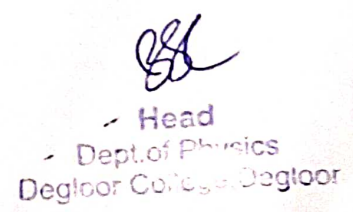 Head
Dept.of Physics
Degloor College,Degloor